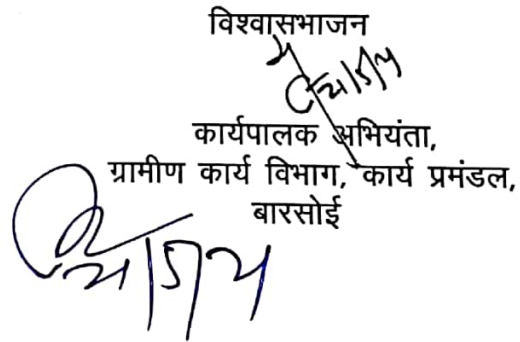 विश्वासभाजन
कार्यपालक अभियंता,
ग्रामीण कार्य विभाग, कार्य प्रमंडल,
बारसोई